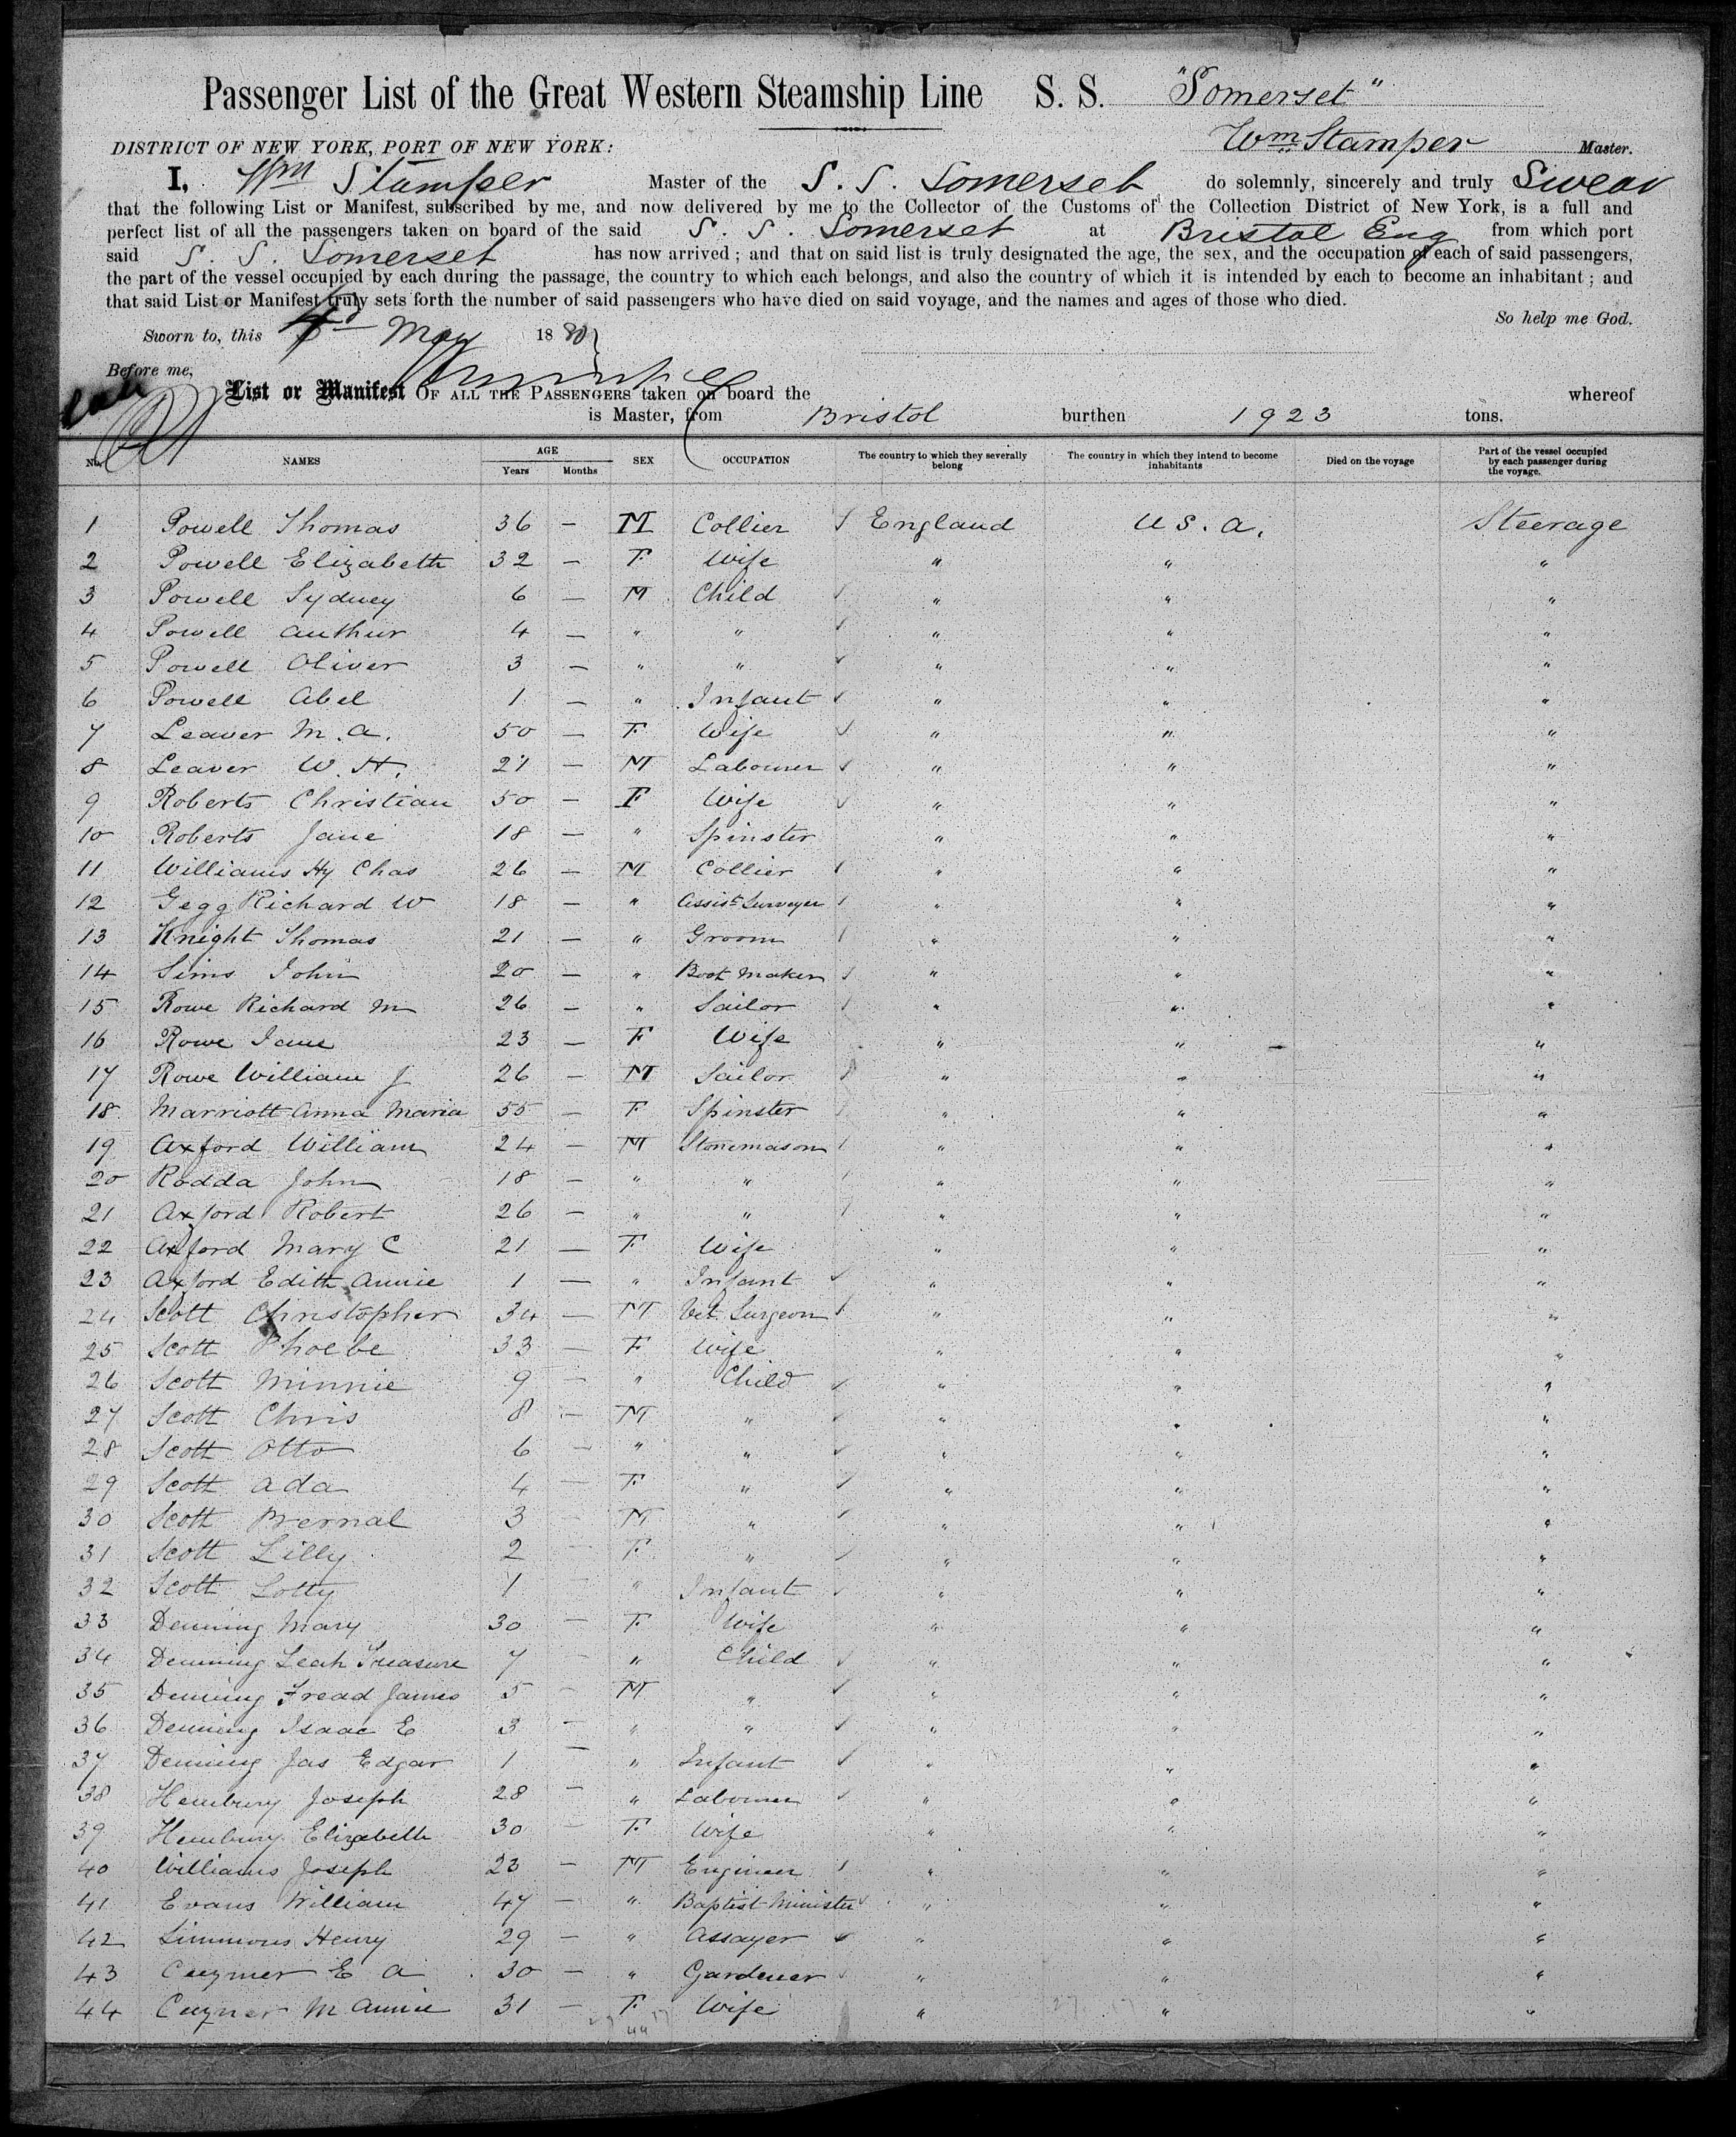 Passenger List of the Great Western Steamship Line S. S. "Somerset"
DISTRICT OF NEW YORK, PORT OF NEW YORK: Wm Stamper Master.
I, Wm Stamper Master of the S. S. Somerset do solemnly, sincerely and truly Swear
that the following List or Manifest, subscribed by me, and now delivered by me to the Collector of the Customs of the Collection District of New York, is a full and
perfect list of all the passengers taken on board of the said S. S. Somerset at Bristol Eng from which port
said S. S. Somerset has now arrived; and that on said list is truly designated the age, the sex, and the occupation of each of said passengers,
the part of the vessel occupied by each during the passage, the country to which each belongs, and also the country of which it is intended by each to become an inhabitant; and
that said List or Manifest truly sets forth the number of said passengers who have died on said voyage, and the names and ages of those who died.
So help me God.
Sworn to, this May 18
Before me,
List or Manifest OF ALL THE PASSENGERS taken on board the whereof
is Master, from Bristol burthen 1923 tons.
No. NAMES AGE Years Months SEX OCCUPATION The country to which they severally belong The country in which they intend to become inhabitants Died on the voyage Part of the vessel occupied by each passenger during the voyage.
1 Powell Thomas 36 — M Collier England U S. A. Steerage
2 Powell Elizabeth 32 — F Wife " " "
3 Powell Sydney 6 — M Child " " "
4 Powell Authur 4 — " " " " "
5 Powell Oliver 3 — " " " " "
6 Powell Abel 1 — " Infant " " "
7 Leaver M. A. 50 — F Wife " " "
8 Leaver W. H. 21 — M Labourer " " "
9 Roberts Christian 50 — F Wife " " "
10 Roberts Jane 18 — " Spinster " " "
11 Williams Hy Chas 26 — M Collier " " "
12 Gegg Richard W 18 — " Assist Surveyer " " "
13 Knight Thomas 21 — " Groom " " "
14 Sims John 20 — " Boot Maker " " "
15 Rowe Richard M 26 — " Sailor " " "
16 Rowe Jane 23 — F Wife " " "
17 Rowe William J 26 — M Sailor " " "
18 Marriott Anna Maria 55 — F Spinster " " "
19 Axford William 24 — M Stonemason " " "
20 Rodda John 18 — " " " " "
21 Axford Robert 26 — " " " " "
22 Axford Mary C 21 — F Wife " " "
23 Axford Edith Annie 1 — " Infant " " "
24 Scott Christopher 34 — M Vet. Surgeon " " "
25 Scott Phoebe 33 — F Wife " " "
26 Scott Minnie 9 — " Child " " "
27 Scott Chris 8 — M " " " "
28 Scott Otto 6 — " " " " "
29 Scott Ada 4 — F " " " "
30 Scott Bernal 3 — M " " " "
31 Scott Lilly 2 — F " " " "
32 Scott Lotty 1 — " Infant " " "
33 Denning Mary 30 — F Wife " " "
34 Denning Leah Treasure 7 — " Child " " "
35 Denning Fread James 5 — M " " " "
36 Denning Isaac E 3 — " " " " "
37 Denning Jas Edgar 1 — " Infant " " "
38 Hembury Joseph 28 — " Labourer " " "
39 Hembury Elizabeth 30 — F Wife " " "
40 Williams Joseph 23 — M Engineer " " "
41 Evans William 47 — " Baptist Minister " " "
42 Simmons Henry 29 — " Assayer " " "
43 E A 30 — " Gardener " " "
44 M Annie 31 — F Wife " " "